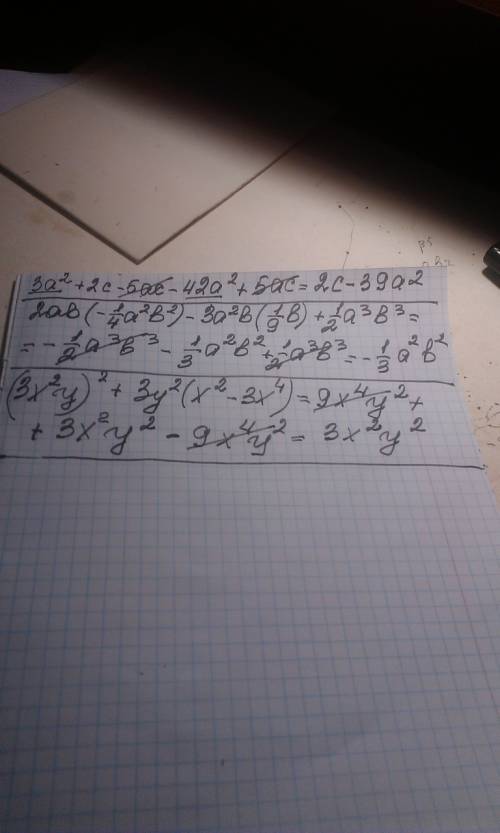 3a² + 2c - 5ac - 42a² + 5ac = 2c - 39a2
2ab(-1/4a²b²) - 3a²b(1/9b) + 1/2a³b³ =
= -1/2a³b³ - 1/3a²b² + 1/2a³b³ = -1/3a²b²
(3x²y)² + 3y²(x² - 3x⁴) = 9x⁴y² +
+ 3x²y² - 9x⁴y² = 3x²y²